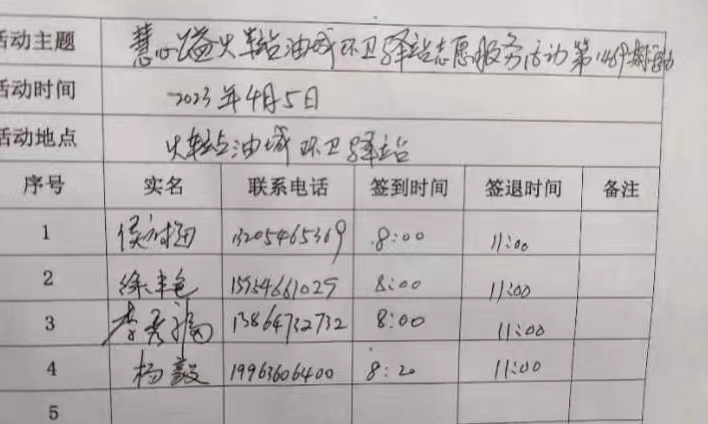 活动主题 慧心公益火车站油城环卫驿站志愿服务活动第 期活动
活动时间 2023年4月5日
活动地点 火车站油城环卫驿站
序号 实名 联系电话 签到时间 签退时间 备注
1 侯 13205465369 8:00 11:00
2 徐丰色 15954661029 8:00 11:00
3 李秀福 13864732732 8:00 11:00
4 杨毅 19963606400 8:20 11:00
5